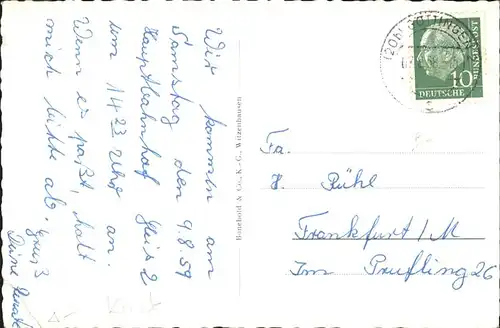 Wir kommen am
Samstag den 9.8.59
Hauptbahnhof Gleis 2
um 14 23 Uhr an.
Wenn es paßt, holt
mich bitte ab.
Gruß
Deine
Bonebold & Co. K.-G., Witzenhausen
(20b) GÖTTINGEN
10
DEUTSCHE
BUNDESPOST
Fa.
H. Rühl
Frankfurt/M
Im Prüfling 26